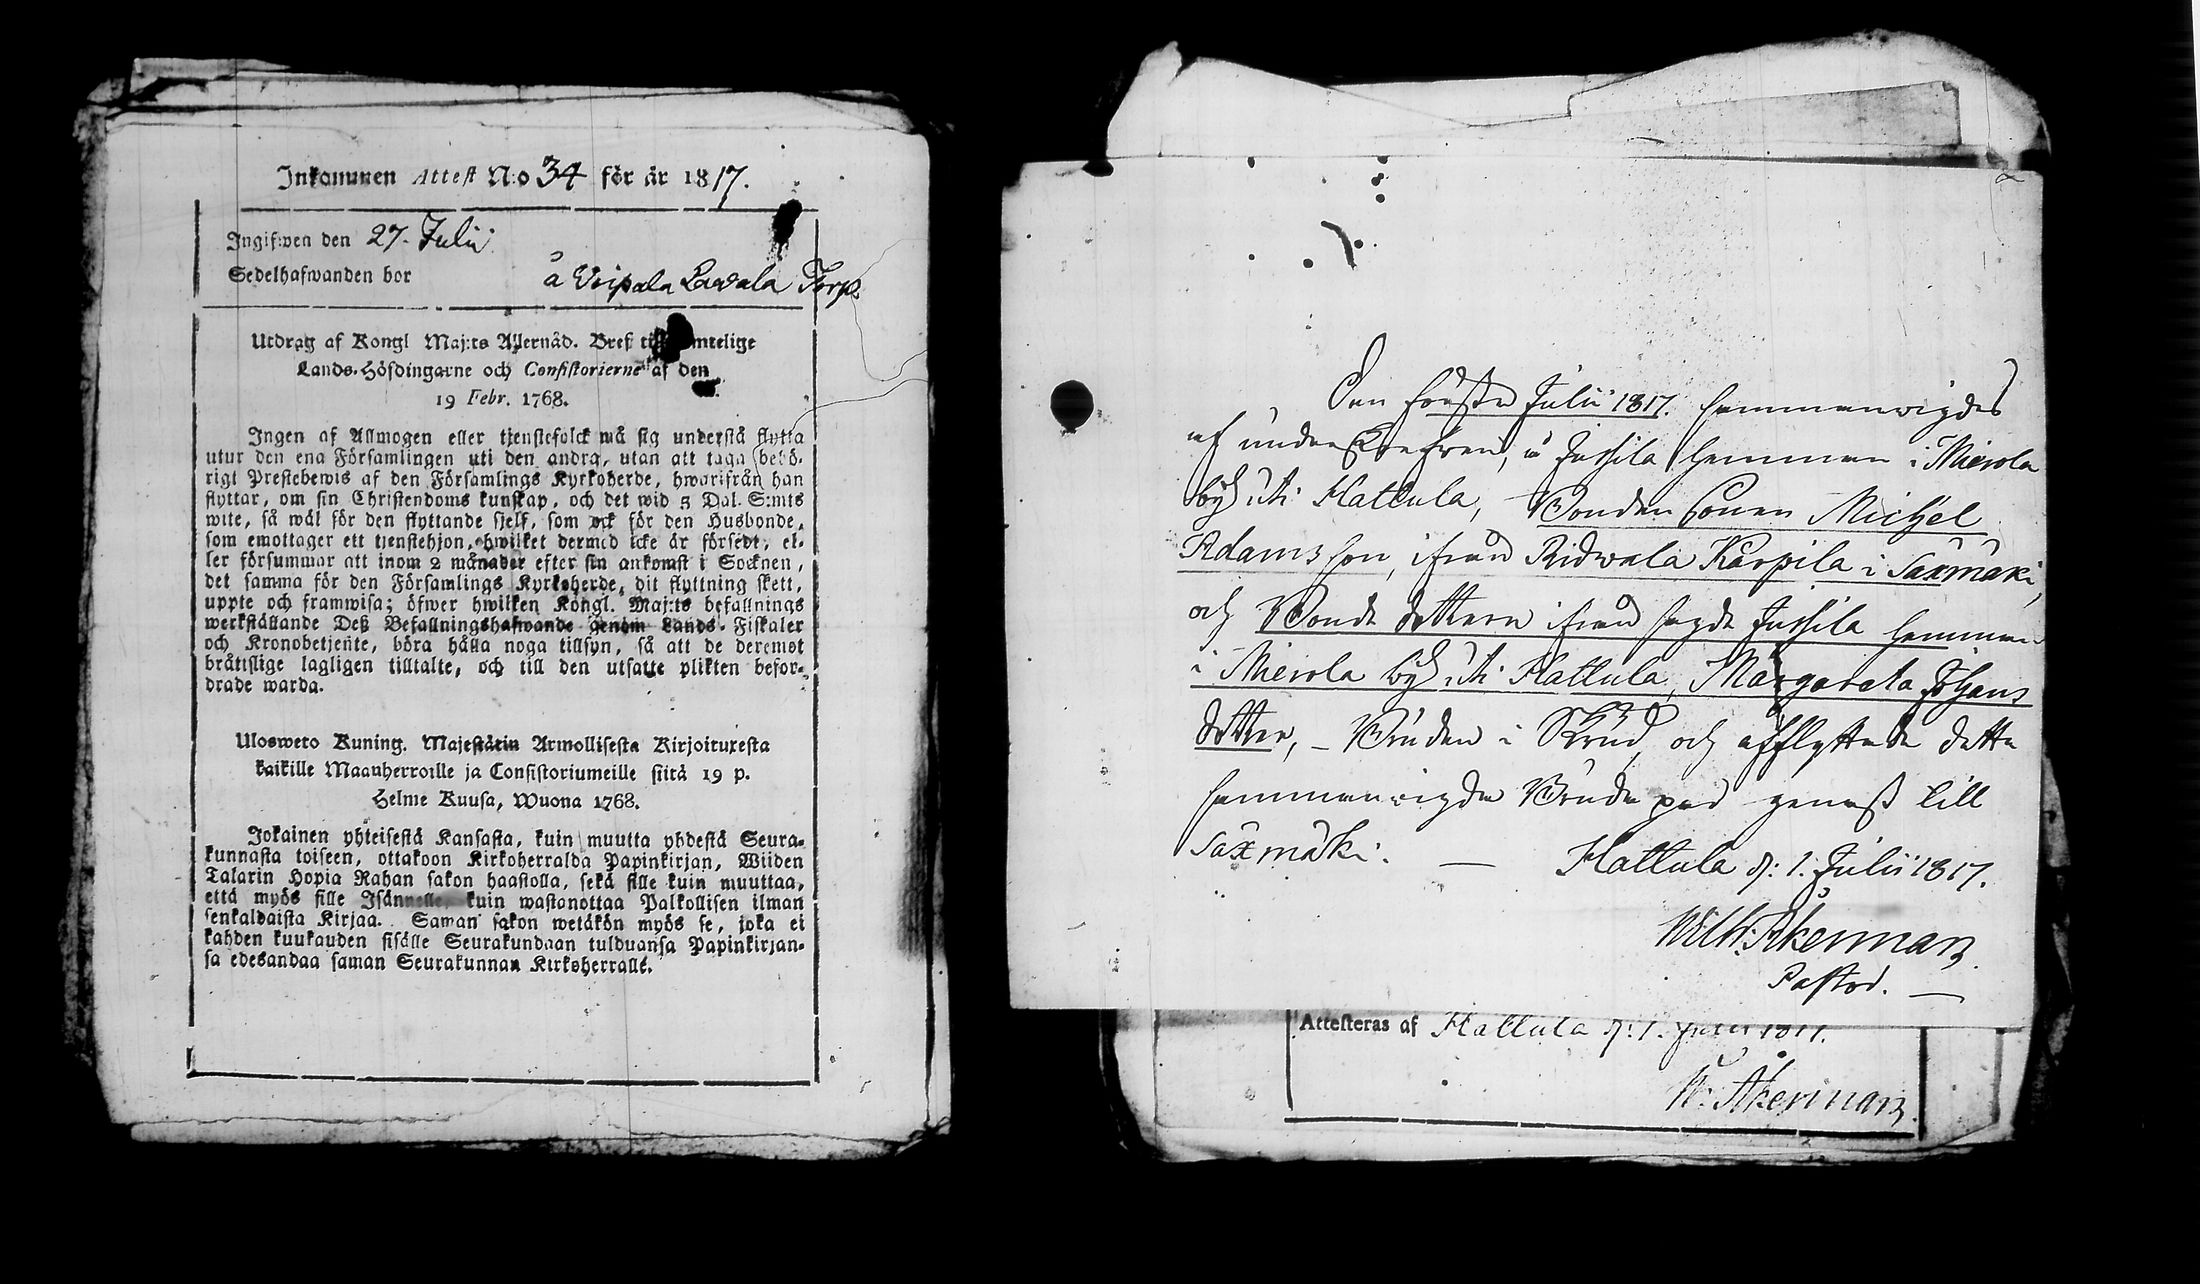 Inkommen Attest N:o 34 för år 1817.
Ingifwen den 27. Julii
Sedelhafwanden bor å Voipala Lavala Torp.
Utdrag af Kongl Maj:ts Allernåd. Bref till samtelige
Lands-Höfdingarne och Consistorierne af den
19 Febr. 1768.
Ingen af Allmogen eller tjenstefolck må sig understå flytta
utur den ena Församlingen uti den andra, utan att taga behö-
rigt Prestebewis af den Församlings Kyrkoherde, hwarifrån han
flyttar, om sin Christendoms kunskap, och det wid 5 Dal. S:mts
wite, så wäl för den flyttande sjelf, som ock för den Husbonde,
som emottager ett tjenstehjon, hwilket dermed icke är försedt, el-
ler försummar att inom 2 månader efter sin ankomst i Socknen,
det samma för den Församlings Kyrkoherde, dit flyttning skett,
uppte och framwisa; öfwer hwilken Kongl. Maj:ts befallnings
werkställande Deß Befallningshafwande genom Lands-Fiskaler
och Kronobetjente, böra hålla noga tillsyn, så att de deremot
bråttslige lagligen tilltalte, och till den utsatte plikten befor-
drade warda.
Ulosweto Kuning. Majestätin Armollisesta Kirjoituxesta
kaikille Maanherroille ja Consistoriumeille siitä 19 p.
Helme Kuusa, Wuona 1768.
Jokainen yhteisestä Kansasta, kuin muutta yhdestä Seura-
kunnasta toiseen, ottakoon Kirkoherralda Papinkirjan, Wiiden
Talarin Hopia Rahan sakon haastolla, sekä sille kuin muuttaa,
että myös sille Isännelle, kuin wastanottaa Palkollisen ilman
senkaldaista Kirjaa. Saman sakon wetäkön myös se, joka ei
kahden kuukauden sisälle Seurakundaan tulduansa Papinkirjan-
sa edesandaa saman Seurakunnan Kirkoherralle.
Den förste Julii 1817. sammanvigdes
af undertecknad, å Jussila hemman i Mierola
by uti Hattula, Bonden Sonen Michel
Adamsson, ifrån Ridvala Karpila i Säxmäki,
och Bonde dottern ifrån sagde Jussila hemman
i Mierola by uti Hattula, Margareta Johans
dotter, – Bruden i Skrud, och afflyttade detta
sammanvigda Brude par genast till
Säxmäki. — Hattula d: 1. Julii 1817.
Wilh: Åkerman
Pastor. —
Attesteras af Hattula d: 1. Julii 1817.
W: Åkerman